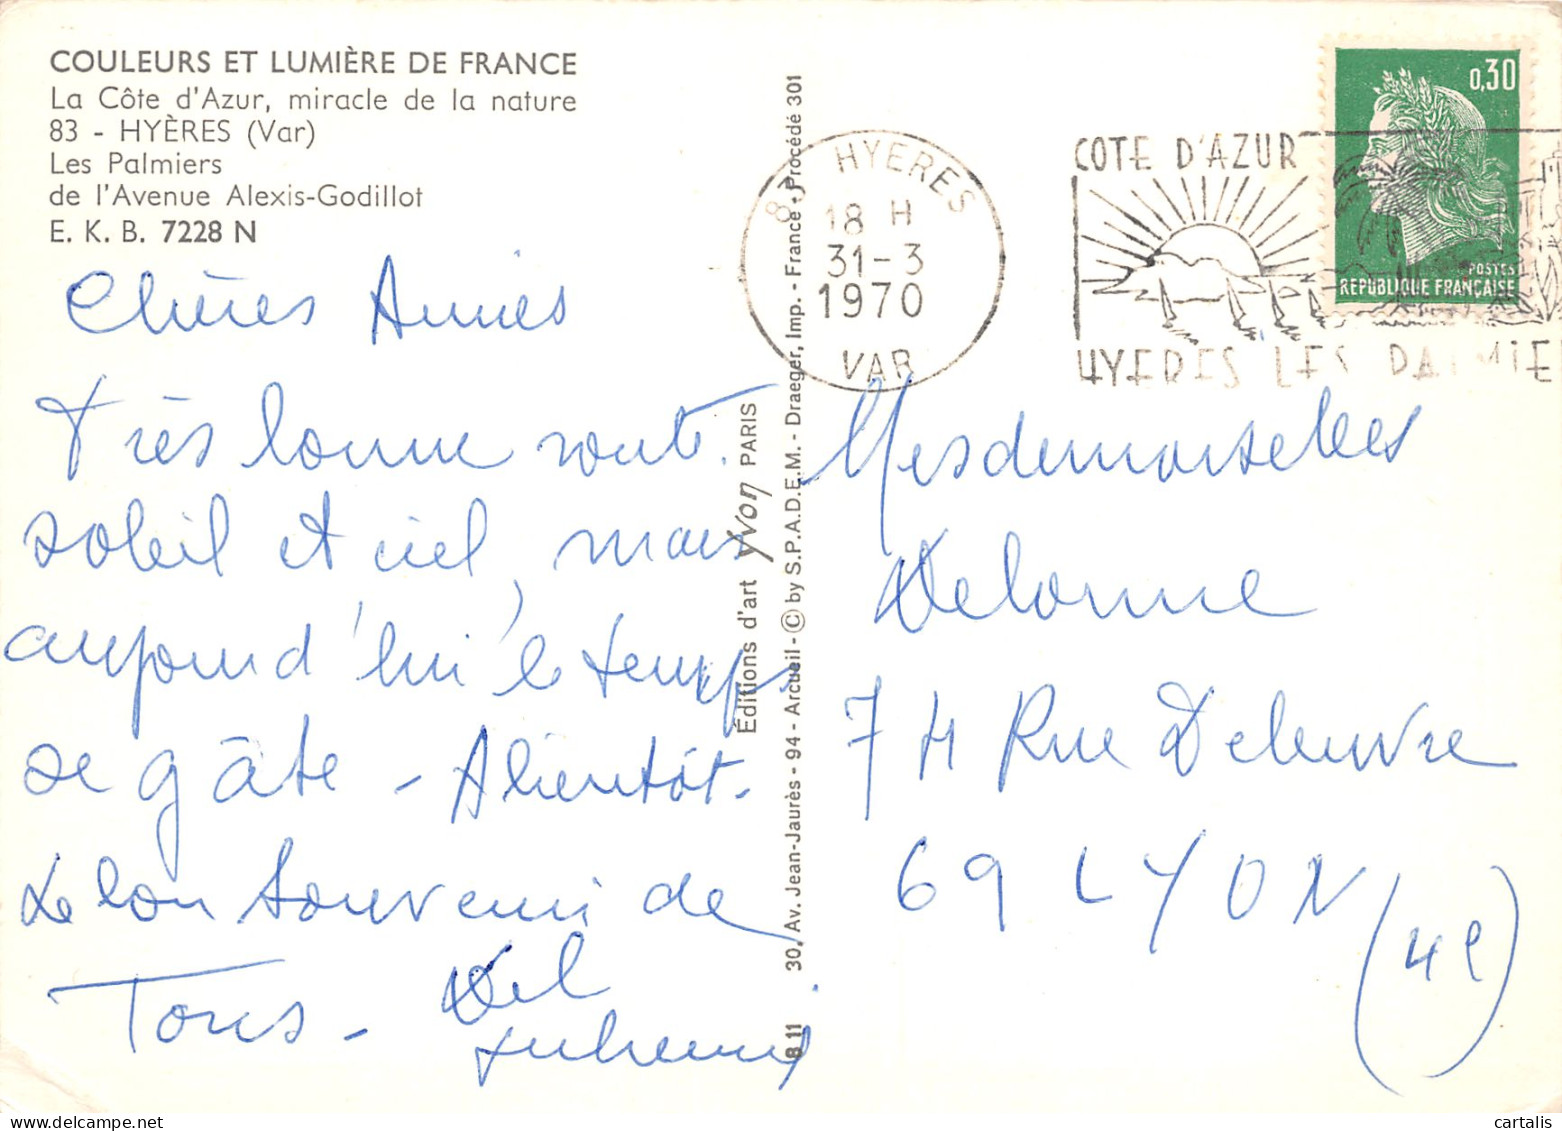 COULEURS ET LUMIÈRE DE FRANCE
La Côte d'Azur, miracle de la nature
83 - HYÈRES (Var)
Les Palmiers
de l'Avenue Alexis-Godillot
E. K. B. 7228 N
Chères Amies
Très bonne route.
soleil et ciel, mais
aujourd'hui le temps
se gâte - A bientôt.
Le bon souvenir de
Tous -
Éditions d'art Yvon PARIS
30, Av. Jean-Jaurès - 94 - Arcueil - © by S.P.A.D.E.M. - Draeger, Imp. - France - Procédé 301
8 11
83 HYERES
18 H
31-3
1970
VAR
COTE D'AZUR
HYERES LES PALMIE
0,30
POSTES
REPUBLIQUE FRANÇAISE
Mesdemoiselles
Delorme
74 Rue Deleuvre
69 LYON
(4e)
cartalis